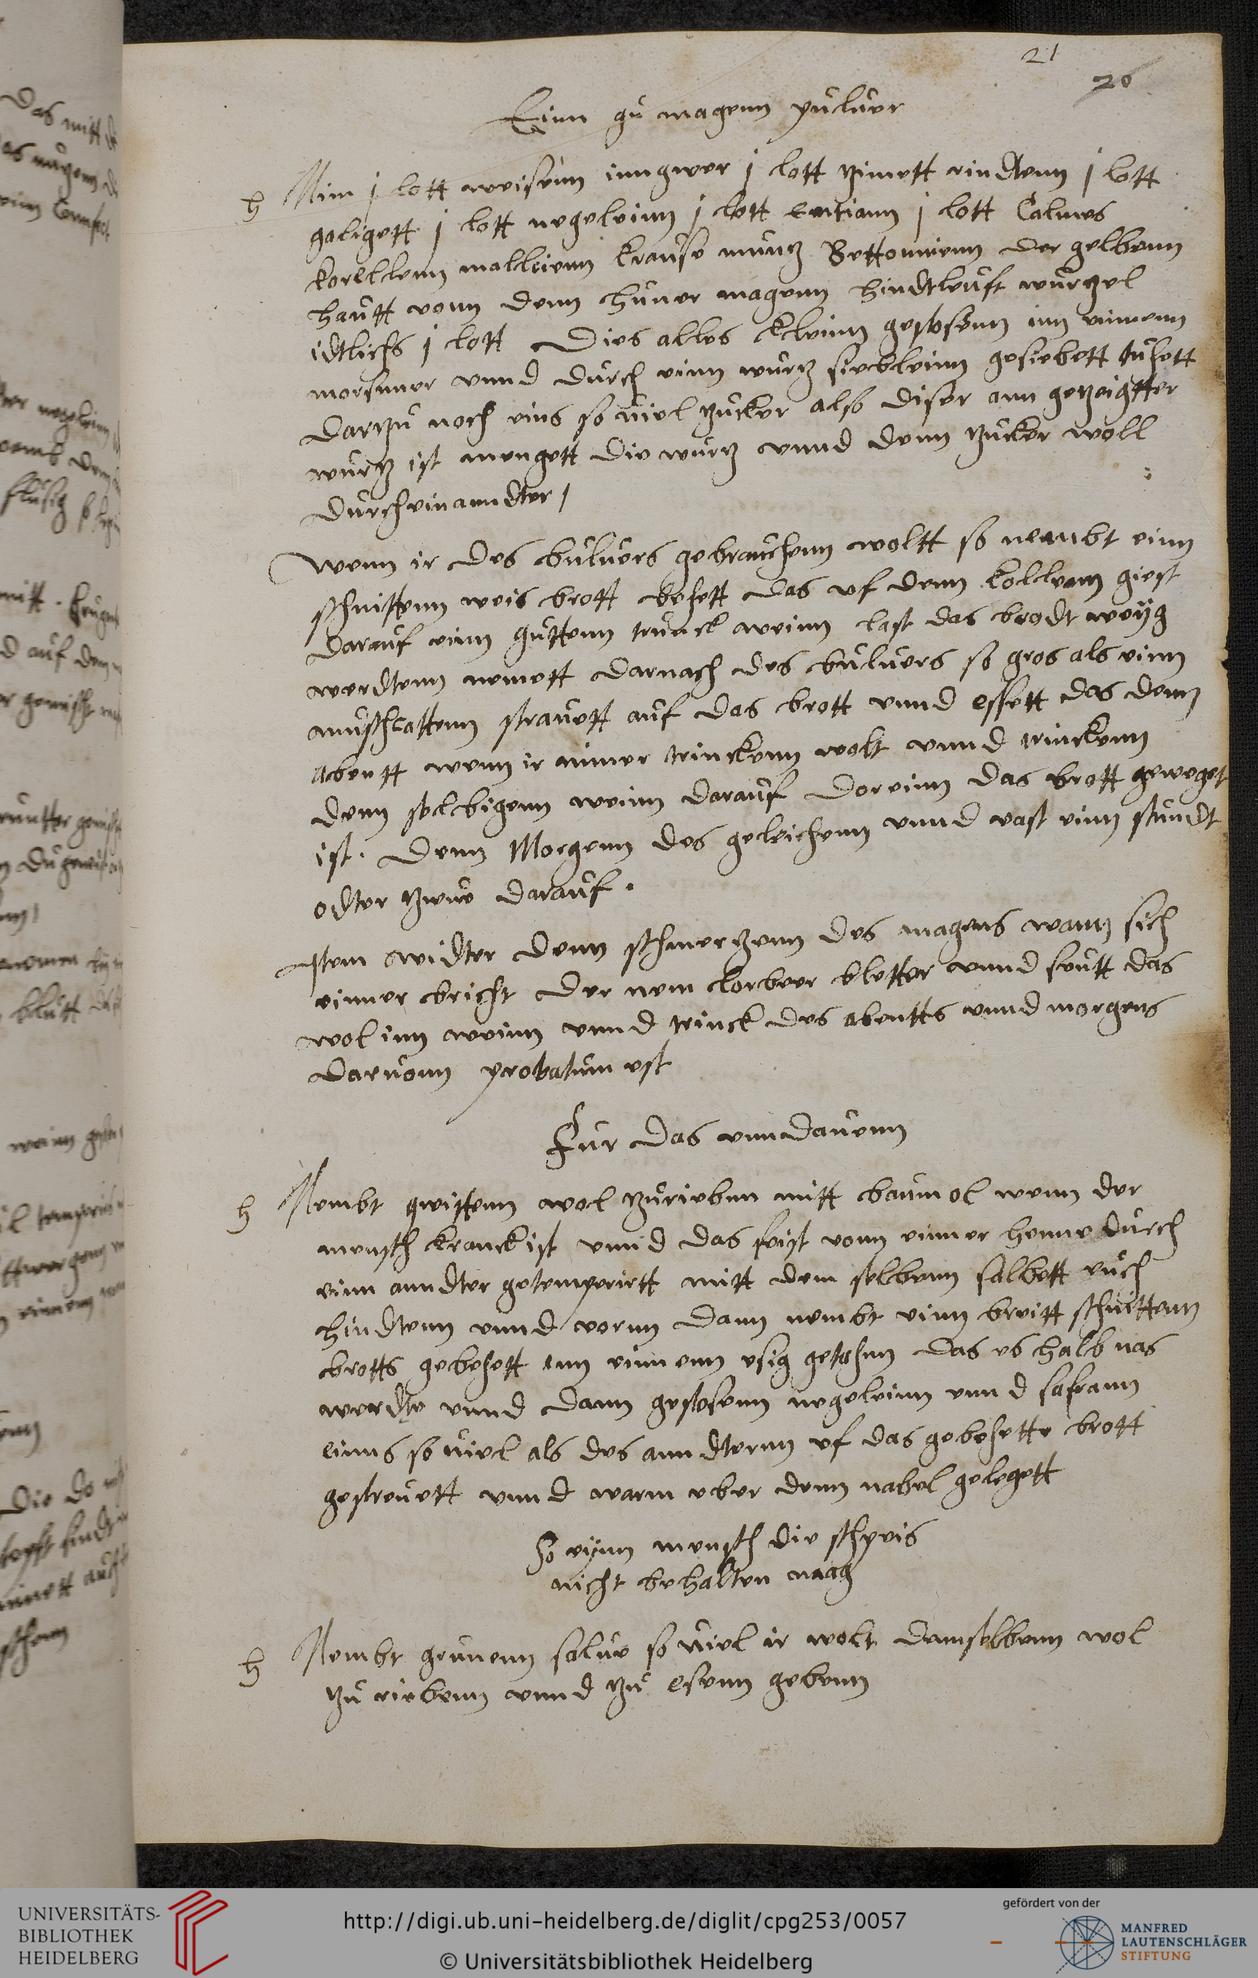 21
20
Einn gu magenn puluer
h Nim j lott weisenn inngwer j lott zimett rindtenn j lott
galigett j lott negeleinn j lott entiann j lott Calmes
korellenn malleienn krause muntz Bettonienn der gelbenn
hautt vonn denn huner magenn hindtleuft wurzel
idtlichs j lott Dies alles kleinn gestosenn inn einnenn
morsnner vnnd durch einn wurtz siebleinn gesiebett
darzu noch eins so uiel zucker als diser ann gezeigtter
wurtz ist mengett die wurtz vnnd denn zucker woll
durcheinanndter /
Wenn ir des buluers gebrauchenn woltt so nembt einn
schnittenn weis brott behett das vf denn kollenn giest
darauf einn guttenn trunck weinn last das brodt weyg
werdtenn nemett darnach des buluers so gros als einn
muschattenn strauett auf das brott vnnd essett das denn
abentt wenn ir nimer trinckenn wolt vnnd trinckenn
denn selbigenn weinn darauf doreinn das brott geweget
ist. Denn Morgenn des geleichenn vnnd vast einn stundt
odter zwue darauf.
Item widter denn schmerzenn des magens wann sich
einner bricht der nem lorbeer bletter vnnd seutt das
wol inn weinn vnnd trinck des abentts vnnd morgens
daruonn probatum est
Fur das vnndauenn
h Nembt qwittenn wol zuriebnn mitt baumol wenn der
mensch kranck ist vnnd das feist vonn einner henne durch
einn anndter getemperirtt mitt dem selbenn salbett euch
hindtenn vnnd vornn dann nembt einn breitt schnittenn
brotts gebehett inn einnenn esig gethunn das es halb nas
werdte vnnd dann gestosenn negeleinn vnnd safrann
einns so uiel als des anndternn vf das gebehette brott
gestreuett vnnd warm vber denn nabel gelegett
So eynn mensch die speis
nicht behalten maag
h Nembt grunenn salue so uiel ir wolt denselbenn wol
zu riebenn vnnd zu esenn gebenn
UNIVERSITÄTS-
BIBLIOTHEK
HEIDELBERG
http://digi.ub.uni-heidelberg.de/diglit/cpg253/0057
© Universitätsbibliothek Heidelberg
gefördert von der
MANFRED
LAUTENSCHLÄGER
STIFTUNG